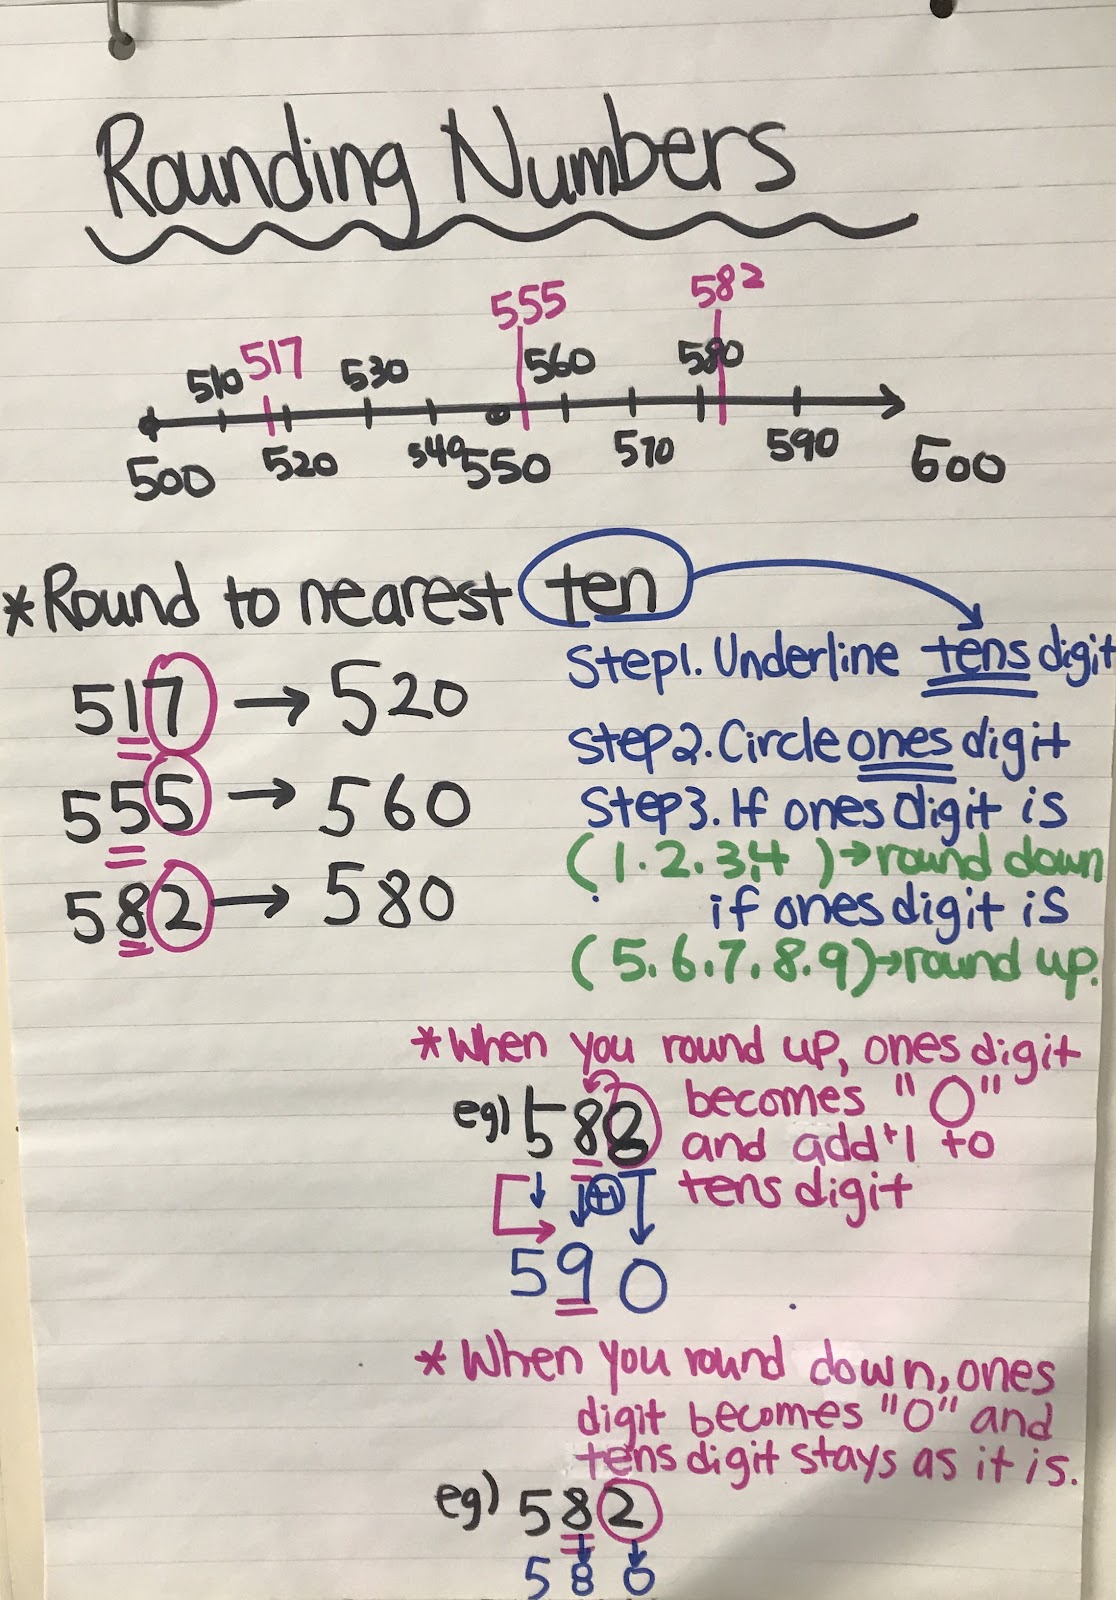 Rounding Numbers
582
555
510 517 530 560 580
500 520 540 550 570 590 600
*Round to nearest ten
Step1. Underline tens digit
517 → 520
Step2. Circle ones digit
555 → 560
Step3. If ones digit is
(1.2.3,4 )→round down
582 → 580
if ones digit is
(5.6.7.8.9)→round up.
*When you round up, ones digit
becomes "0"
eg) 58
and add +1 to
tens digit
+1
590
* When you round down, ones
digit becomes "0" and
tens digit stays as it is.
eg) 582
580